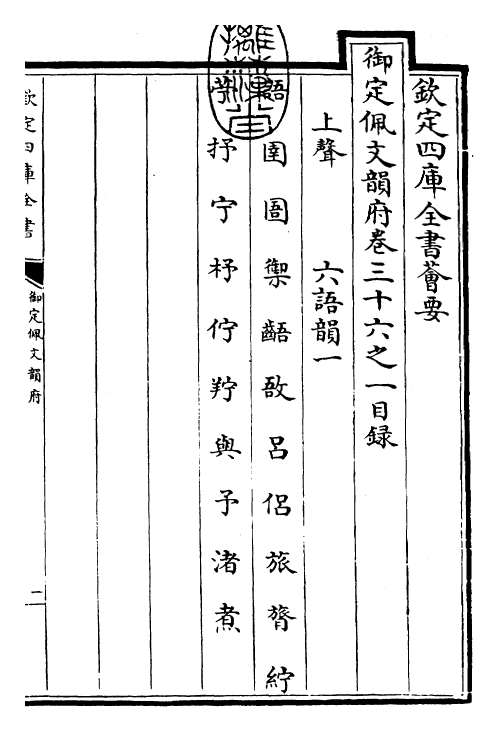 欽定四庫全書薈要
御定佩文韻府卷三十六之一目録
上聲 六語韻一
語圉圄禦齬敔呂侶旅膂紵
抒宁杼佇羜與予渚煮
欽定四庫全書
御定佩文韻府
二